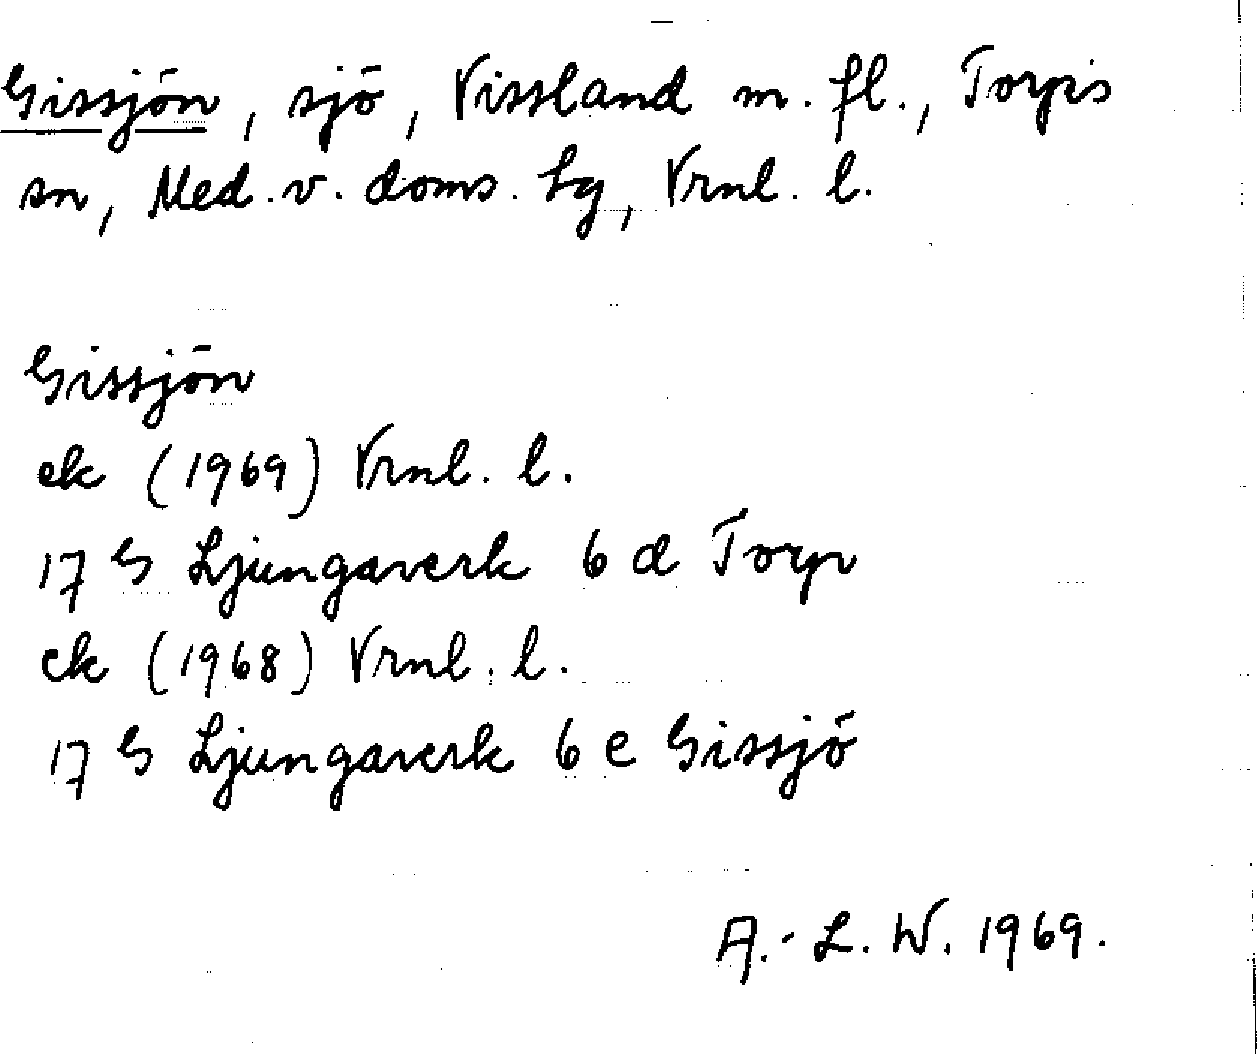 Gissjön, sjö, Vissland m. fl., Torps
sn, Med. v. doms. hg, Vrnl. l.
Gissjön
ek (1969) Vrnl. l.
17 G Ljungaverk 6 d Torp
ek (1968) Vrnl. l.
17 G Ljungaverk 6 e Gissjö
A.-L. W. 1969.